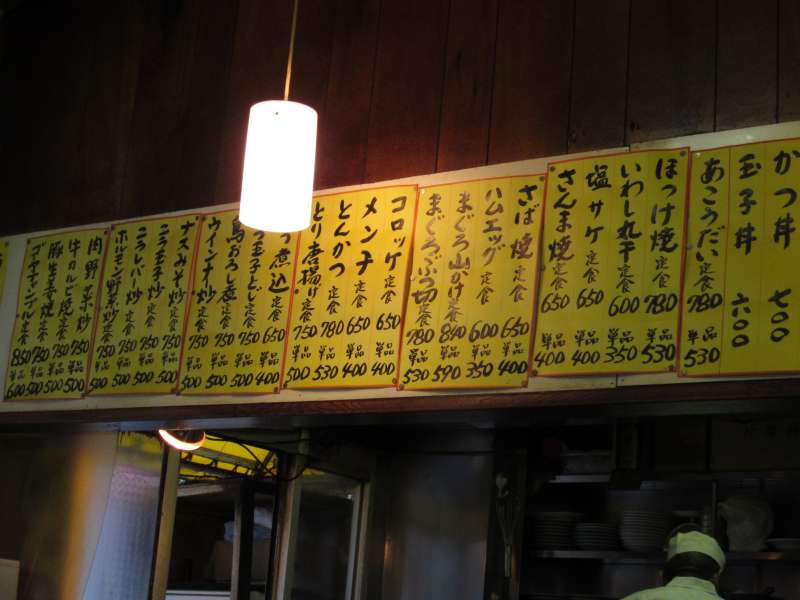 かつ丼 七〇〇
玉子丼 六〇〇
あこうだい定食 780 単品 530
ほっけ焼定食 780 単品 530
いわし丸干定食 600 単品 350
塩サケ定食 650 単品 400
さんま焼定食 650 単品 400
さば焼定食 650 単品 400
ハムエッグ定食 600 単品 350
まぐろ山かけ定食 840 単品 590
まぐろぶつ切定食 780 単品 530
コロッケ定食 650 単品 400
メンチ定食 650 単品 400
とんかつ定食 780 単品 530
とり唐揚げ定食 750 単品 500
煮込定食 650 単品 400
玉子とじ定食 750 単品 500
鳥おろし煮定食 750 単品 500
ウインナ炒定食 750 単品 500
ナスみそ炒定食 750 単品 500
ニラ玉子炒定食 750 単品 500
ニラレバー炒定食 750 単品 500
ホルモン野菜炒定食 750 単品 500
肉野菜炒定食 750 単品 500
牛カルビ焼定食 750 単品 500
豚生姜焼定食 750 単品 500
ゴーヤチャンプル定食 850 単品 600